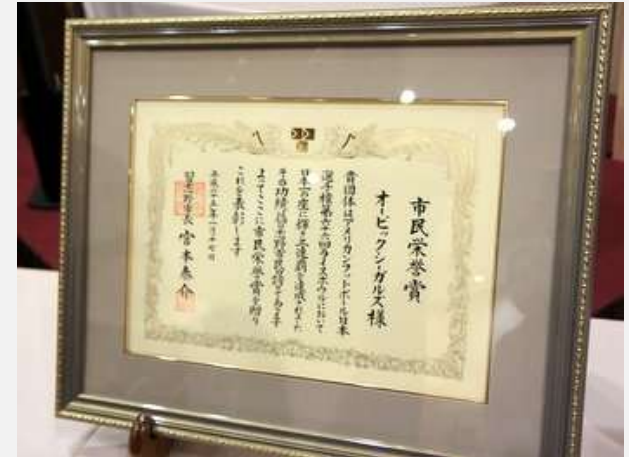 市民栄誉賞
オービックシーガルズ様
貴団体はアメリカンフットボール日本
選手権第六十六回ライスボウルにおいて
日本一の座に輝き三連覇を達成されました
その功績は習志野市民の誇りであります
よってここに市民栄誉賞を贈り
これを表彰します
平成二十五年一月十七日
習志野市長 宮本泰介